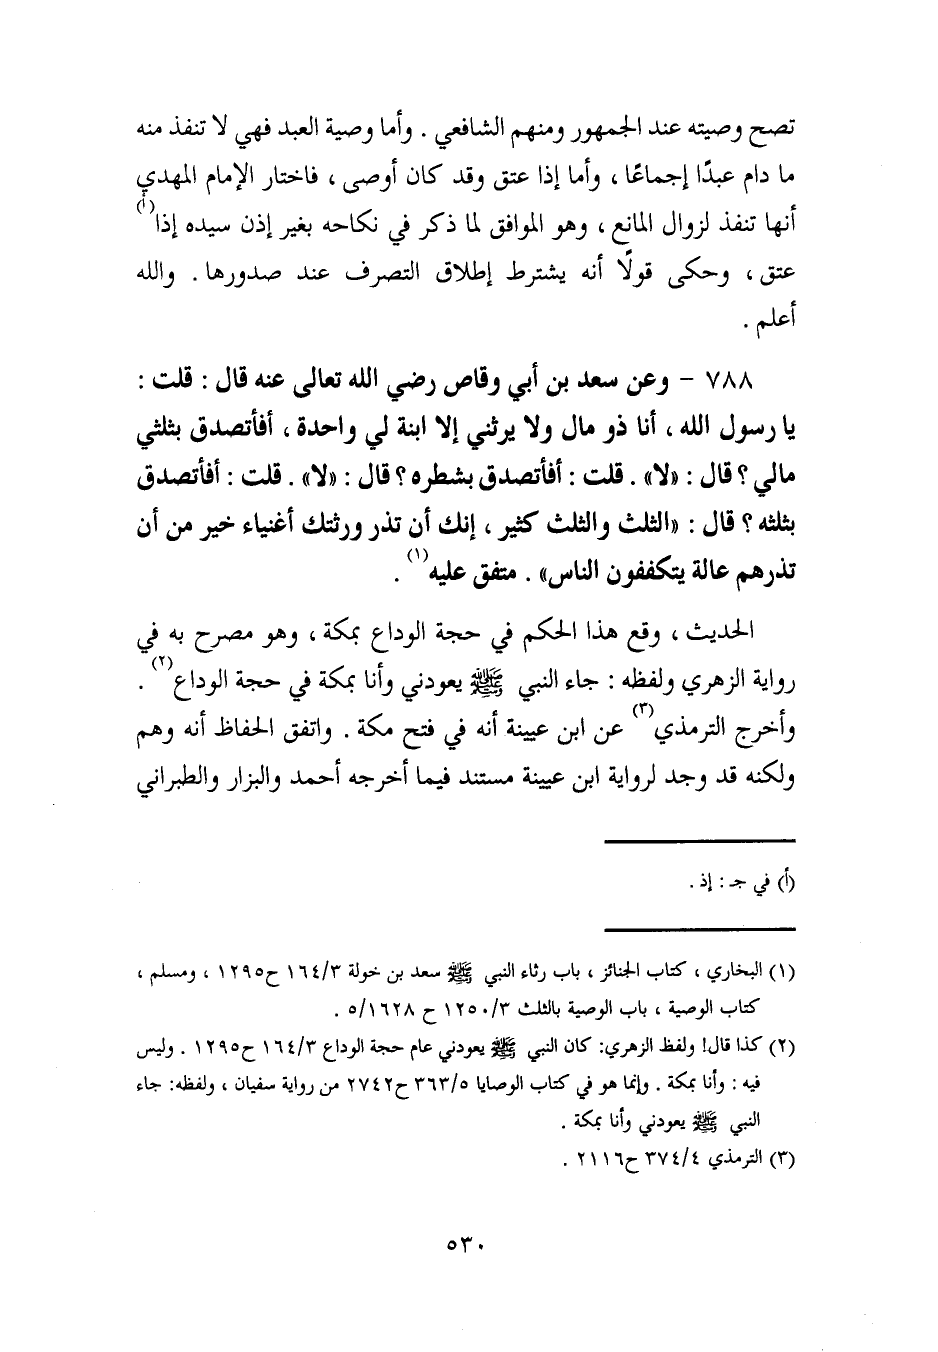 تصح وصيته عند الجمهور ومنهم الشافعي . وأما وصية العبد فهي لا تنفذ منه
ما دام عبدًا إجماعًا ، وأما إذا عتق وقد كان أوصى ، فاختار الإمام المهدي
أنها تنفذ لزوال المانع ، وهو الموافق لما ذكر في نكاحه بغير إذن سيده إذا(أ)
عتق ، وحكى قولًا أنه يشترط إطلاق التصرف عند صدورها . والله
أعلم .
٧٨٨ - وعن سعد بن أبي وقاص رضي الله تعالى عنه قال : قلت :
يا رسول الله ، أنا ذو مال ولا يرثني إلا ابنة لي واحدة ، أفأتصدق بثلثي
مالي ؟ قال : «لا» . قلت : أفأتصدق بشطره ؟ قال : «لا» . قلت : أفأتصدق
بثلثه ؟ قال : «الثلث والثلث كثير ، إنك أن تذر ورثتك أغنياء خير من أن
تذرهم عالة يتكففون الناس» . متفق عليه(١) .
الحديث ، وقع هذا الحكم في حجة الوداع بمكة ، وهو مصرح به في
رواية الزهري ولفظه : جاء النبي ﷺ يعودني وأنا بمكة في حجة الوداع(٢) .
وأخرج الترمذي(٣) عن ابن عيينة أنه في فتح مكة . واتفق الحفاظ أنه وهم
ولكنه قد وجد لرواية ابن عيينة مستند فيما أخرجه أحمد والبزار والطبراني
(أ) في جـ : إذ .
(١) البخاري ، كتاب الجنائز ، باب رثاء النبي ﷺ سعد بن خولة ٣/ ١٦٤ ح١٢٩٥ ، ومسلم ،
كتاب الوصية ، باب الوصية بالثلث ٣/ ١٢٥٠ ح ١٦٢٨/ ٥ .
(٢) كذا قال! ولفظ الزهري: كان النبي ﷺ يعودني عام حجة الوداع ٣/ ١٦٤ ح١٢٩٥ . وليس
فيه : وأنا بمكة . وإنما هو في كتاب الوصايا ٥/ ٣٦٣ ح٢٧٤٢ من رواية سفيان ، ولفظه: جاء
النبي ﷺ يعودني وأنا بمكة .
(٣) الترمذي ٤/ ٣٧٤ ح٢١١٦ .
٥٣٠